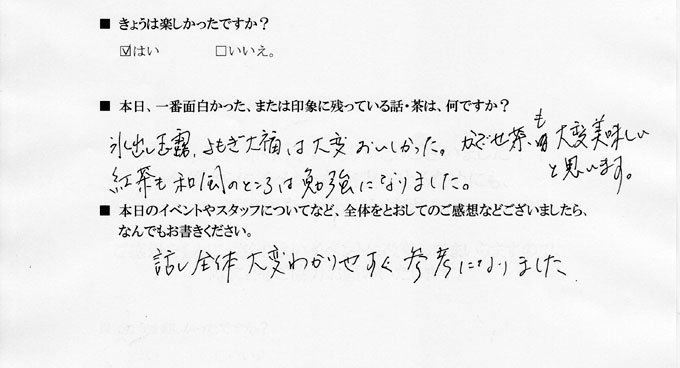 ■ きょうは楽しかったですか？
☑はい □いいえ。
■ 本日、一番面白かった、または印象に残っている話・茶は、何ですか？
氷出し玉露、よもぎ大福は大変おいしかった。かぶせ茶も大変美味しい
と思います。
紅茶も和風のところは勉強になりました。
■ 本日のイベントやスタッフについてなど、全体をとおしてのご感想などございましたら、
なんでもお書きください。
話し全体大変わかりやすく参考になりました